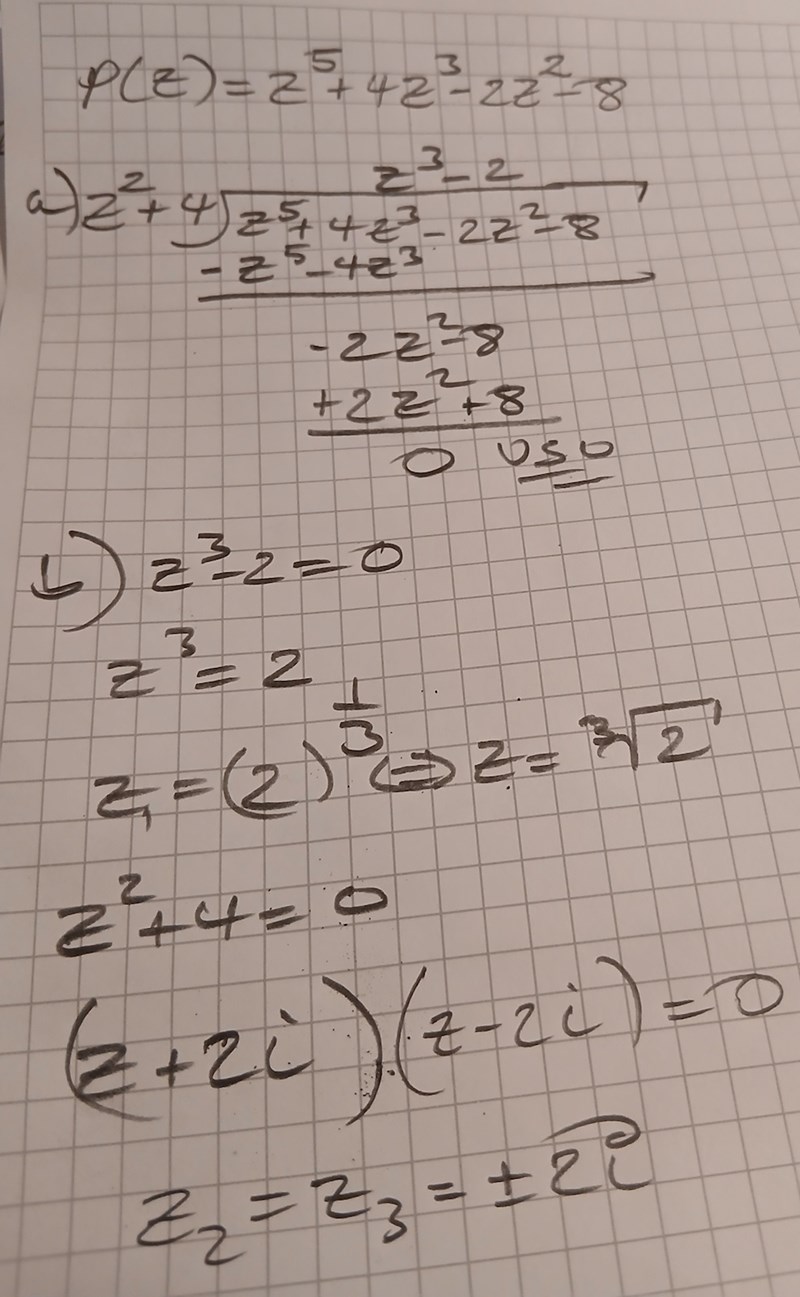 p(z) = z⁵ + 4z³ - 2z² - 8
z³ - 2
a) z² + 4 ) z⁵ + 4z³ - 2z² - 8
- z⁵ - 4z³
- 2z² - 8
+ 2z² + 8
0 VSV
b) z³ - 2 = 0
z³ = 2
z₁ = (2)^(1/3) ⇔ z = ³√2
z² + 4 = 0
(z + 2i)(z - 2i) = 0
z₂ = z₃ = ± 2i